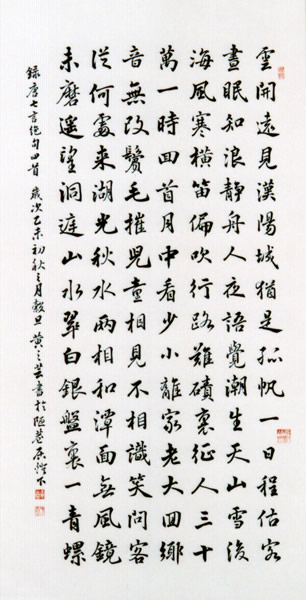 雲開遠見漢陽城猶是孤帆一日程估客
晝眠知浪靜舟人夜語覺潮生天山雪後
海風寒橫笛偏吹行路難磧裏征人三十
萬一時回首月中看少小離家老大回鄉
音無改鬢毛摧兒童相見不相識笑問客
從何處來湖光秋水兩相和潭面無風鏡
未磨遙望洞庭山水翠白銀盤裏一青螺
錄唐七言絕句四首 歲次乙未初秋之月穀旦 黃之書於陋巷居燈下